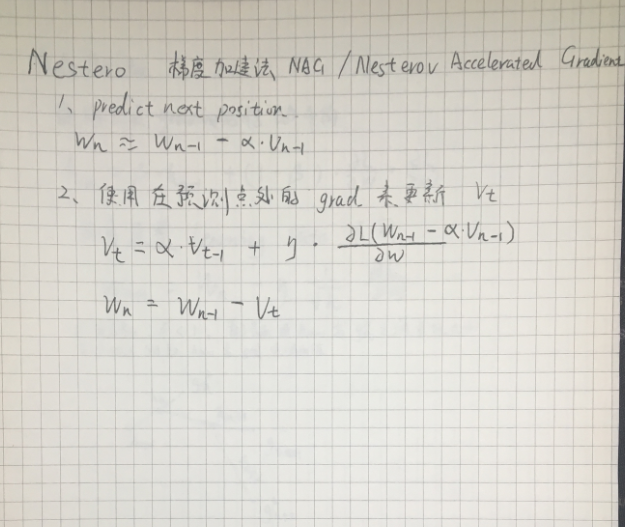 Nestero 梯度加速法 NAG / Nesterov Accelerated Gradient
1、predict next position.
Wn ≈ Wn-1 - α·Vn-1
2、使用在预测点处的 grad 来更新 Vt
Vt = α·Vt-1 + η · ∂L(Wn-1 - α·Vn-1) / ∂w
Wn = Wn-1 - Vt